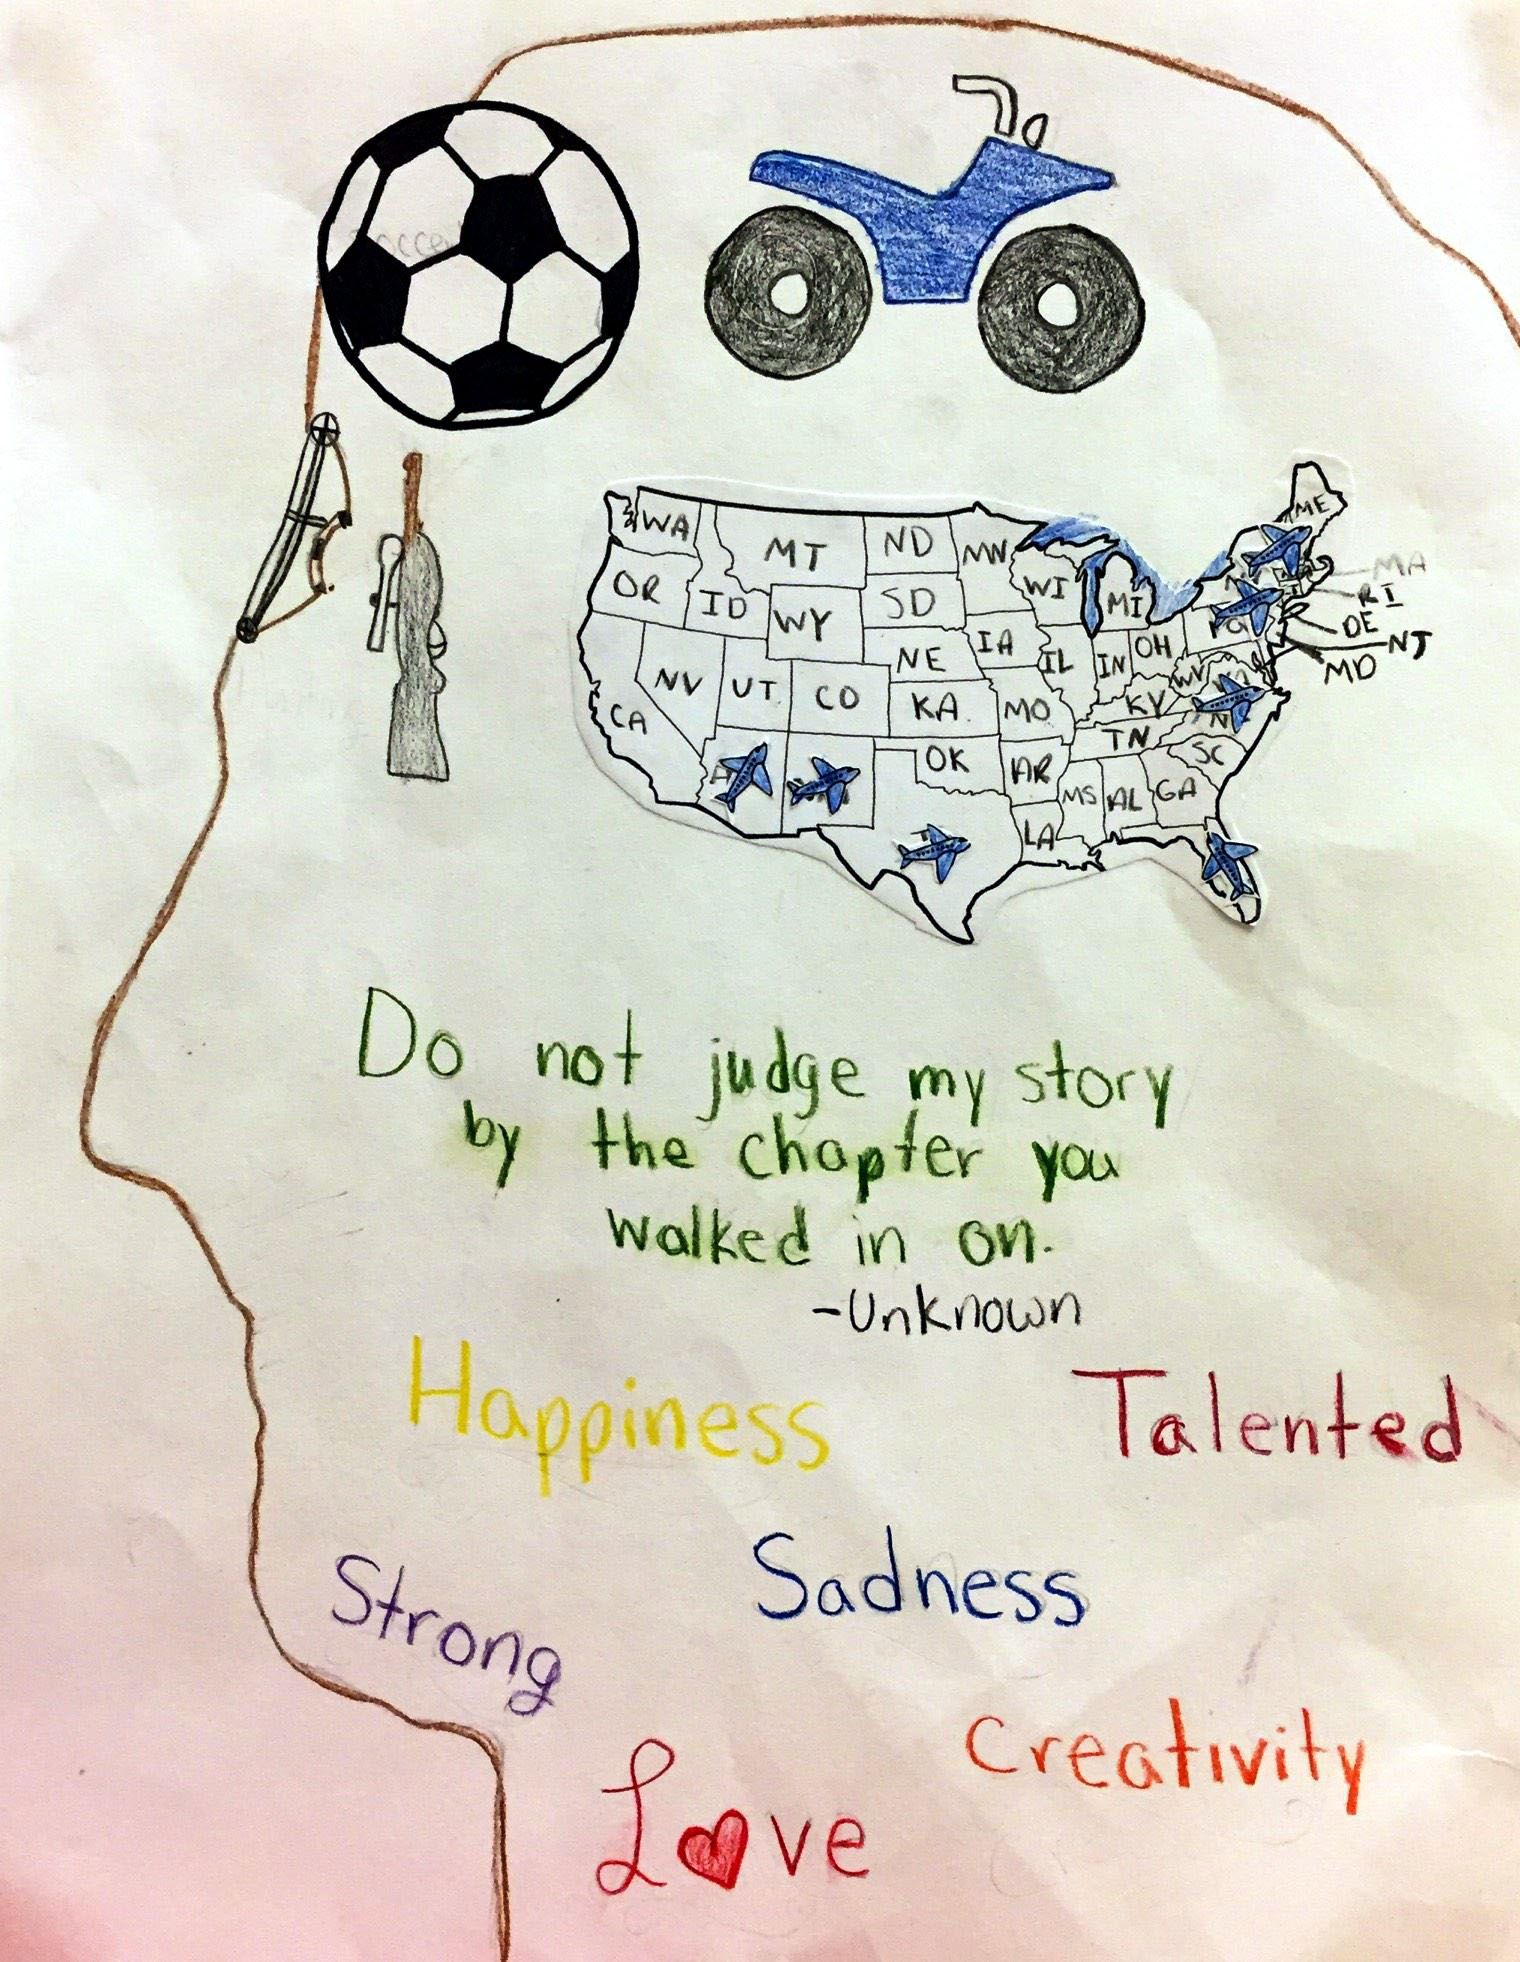 soccer
WA
MT
ND
MN
ME
OR
ID
WY
SD
WI
MI
MA
RI
DE
NJ
MD
NV
UT
CO
NE
IA
IL
IN
OH
PA
WV
CA
KA
MO
KY
NC
TN
SC
OK
AR
MS
AL
GA
LA
Do not judge my story
by the chapter you
walked in on.
-Unknown
Happiness
Talented
Sadness
Strong
Creativity
Love